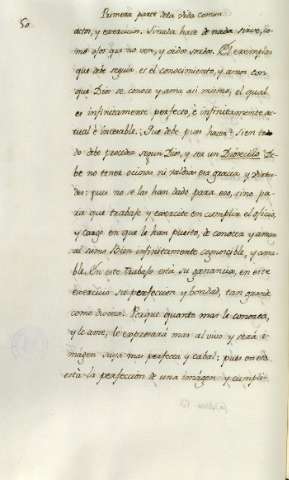 50.
Primera parte dela vida comun
actos, y exercicios. Si nada hace de nada sirve, co-
mo ojos que no ven, y oidos sordos. El exemplar
que debe seguir es el conocimiento, y amor con
que Dios se conoce y ama asi mismo, el qual
es infinitamente perfecto, è infinitamente ac-
tual è incesable. Que debe pues hacer? si en to-
do debe proceder segun Dios, y ser un Diosecillo: de-
be no tener ociosas ni valdias sus gracias, y virtu-
des: pues no se las han dado para eso, sino pa-
ra que trabaje y exercite en cumplir el oficio,
y cargo en que le han puesto, de conocer y amar
al sumo Bien infinitamente cognoscible, y ama-
ble. En este trabajo està su ganancia, en este
exercicio su perfeccion y bondad, tan grande
como divina. Porque quanto mas le conozca,
y le ame, le expresarà mas al vivo y serà i-
magen suya mas perfecta y cabal: pues en esto
està la perfeccion de una imàgen y cumpli-